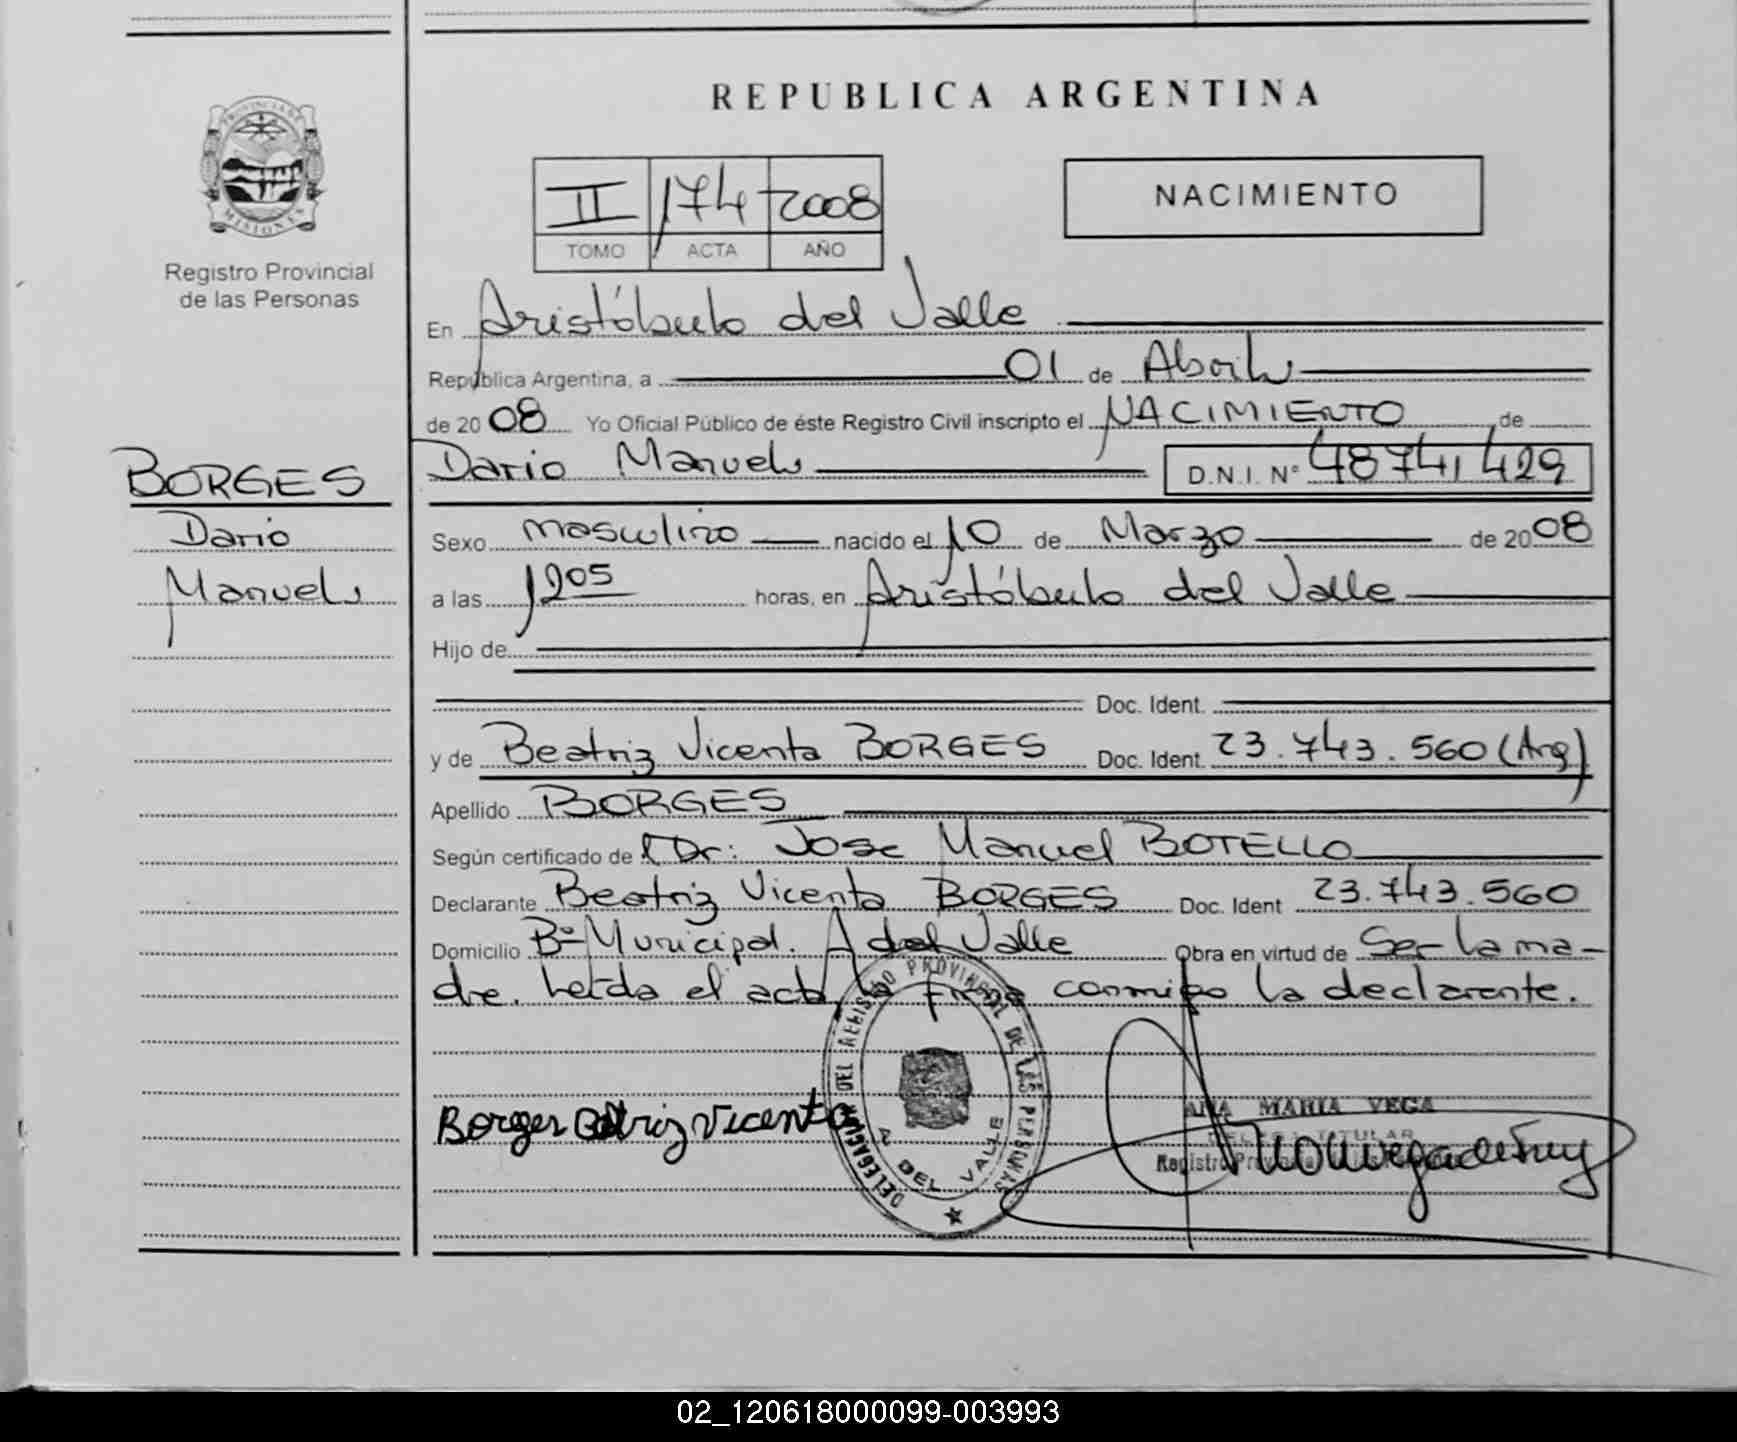 PROVINCIA DE
MISIONES
Registro Provincial
de las Personas
BORGES
Dario
Manuel
REPUBLICA ARGENTINA
II 174 2008
TOMO ACTA AÑO
NACIMIENTO
En Aristóbulo del Valle
República Argentina, a 01 de Abril
de 2008 Yo Oficial Público de éste Registro Civil inscripto el NACIMIENTO de
Dario Manuel D.N.I. N° 48741,429
Sexo masculino nacido el 10 de Marzo de 2008
a las 1205 horas, en Aristóbulo del Valle
Hijo de
Doc. Ident.
y de Beatriz Vicenta BORGES Doc. Ident. 23.743.560 (Arg)
Apellido BORGES
Según certificado de Dr: Jose Manuel BOTELLO
Declarante Beatriz Vicenta BORGES Doc. Ident 23.743.560
Domicilio B° Municipal. A del Valle Obra en virtud de Ser la ma-
dre. Leída el acta, la firma conmigo la declarante.
DELEGACION DEL REGISTRO PROVINCIAL DE LAS PERSONAS
A. DEL VALLE
Borges Beatriz Vicenta
ANA MARIA VEGA
TITULAR
Registro Provincial de las
02_120618000099-003993